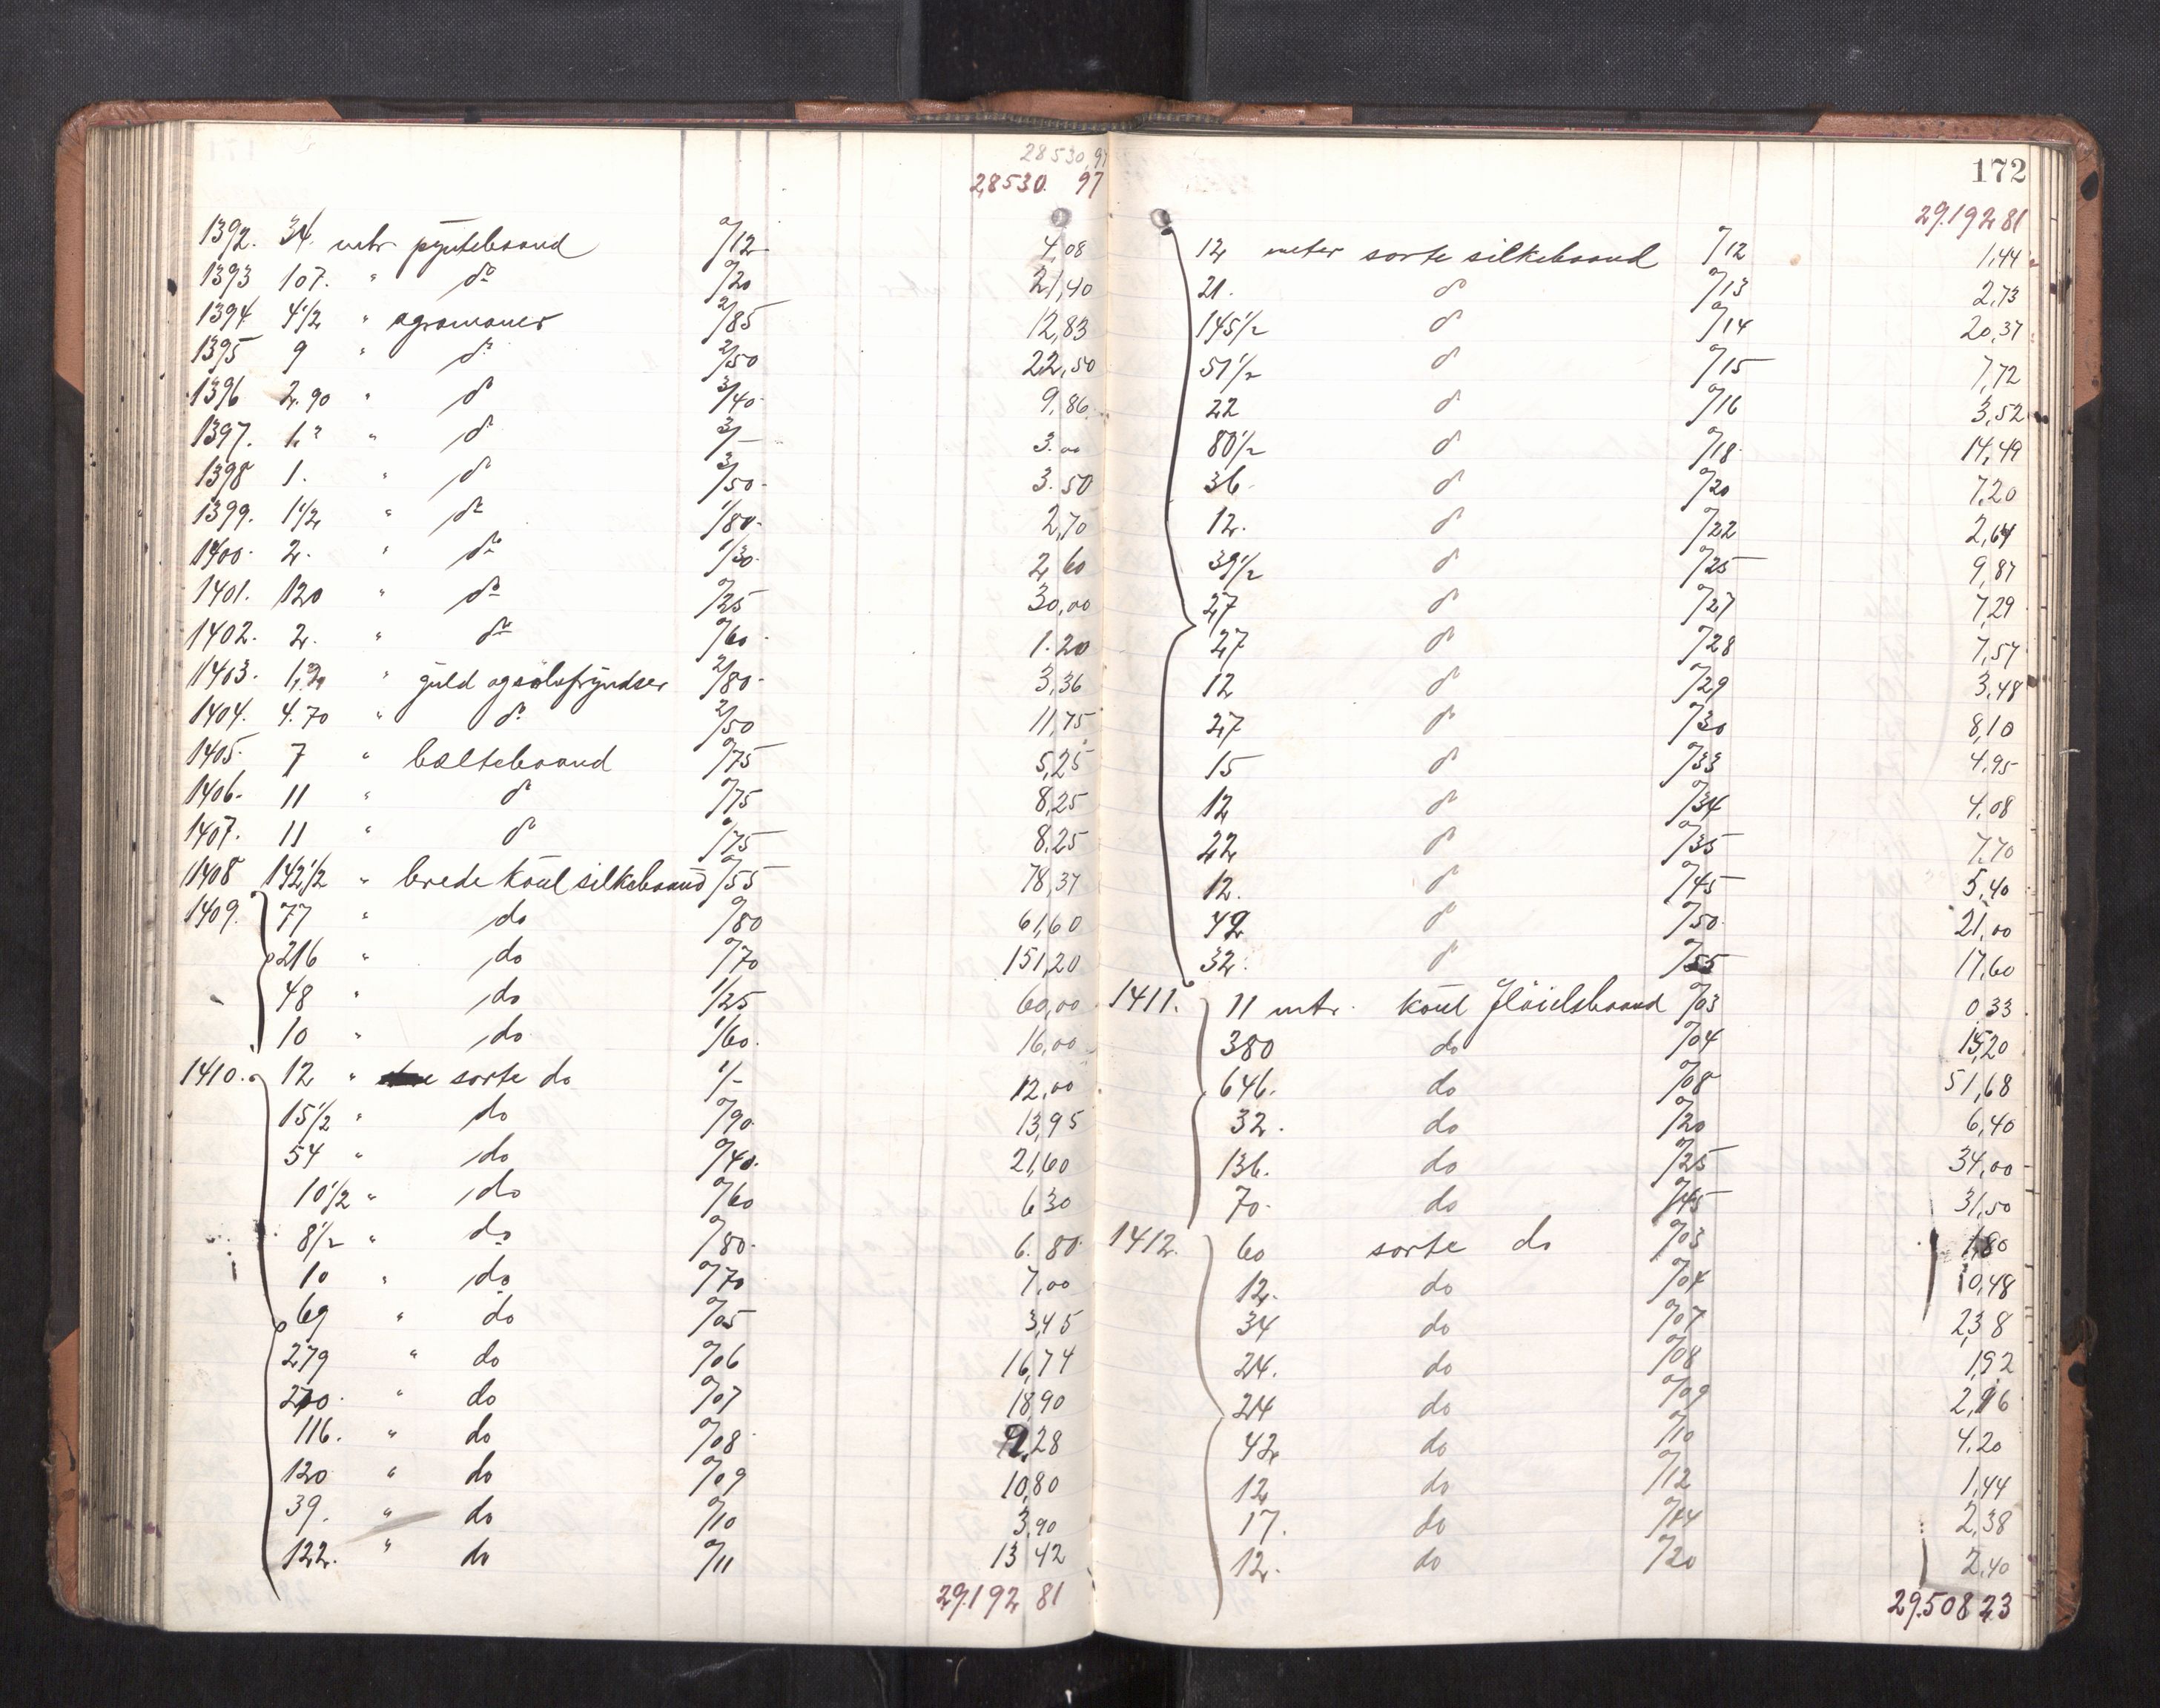 28530,97
28530. 97
1392. 34. mtr pyntebaand 0/12 4,08
1393 107. " do 0/20 21,40
1394 4 1/2 " agramaner 2/85 12,83
1395 9 " do 2/50 22,50
1396 2.90 " do 3/40 9,86
1397. 1. " do 3/- 3.00
1398 1. " do 3/50 3.50
1399. 1 1/2 " do 1/80 2,70
1400. 2. " do 1/30 2,60
1401. 120 " do 0/25 30,00
1402. 2. " do 0/60 1.20
1403. 1,20 " guld og sølvfryndser 2/80 3,36
1404. 4.70 " do 2/50 11,75
1405. 7 " bæltebaand 0/75 5,25
1406. 11 " do 0/75 8,25
1407. 11 " do 0/75 8.25
1408 142 1/2 " brede koul silkebaand 0/55 78,37
1409. 77 " do 0/80 61,60
216 " do 0/70 151,20
48 " do 1/25 60,00
10 " do 1/60. 16,00
1410. 12 " sorte do 1/- 12,00
15 1/2 " do 0/90 13,95
54 " do 0/40. 21,60
10 1/2 " do 0/60 6 30
8 1/2 " do 0/80. 6. 80
10 " do 0/70 7,00
69 " do 0/05 3,45
279 " do 0/06 16,74
270 " do 0/07 18,90
116. " do 0/08 9,28
120 " do 0/09 10,80
39. " do 0/10 3,90
122. " do 0/11 13 42
29.192 81
172
29.192 81
12 meter sorte silkebaand 0/12 1,44
21. do 0/13 2,73
145 1/2 do 0/14 20,37
51 1/2 do 0/15 7,72
22 do 0/16 3,52
80 1/2 do 0/18 14,49
36 do 0/20 7,20
12. do 0/22 2,64
39 1/2 do 0/25 9,87
27 do 0/27 7,29
27 do 0/28 7,57
12 do 0/29 3,48
27 do 0/30 8,10
15 do 0/33 4,95
12 do 0/34 4,08
22 do 0/35 7,70
12. do 0/45 5,40
42 do 0/50 21,00
32. do 0/55 17,60
1411. 11 mtr. koul fløielsbaand 0/03 0 33
380 do 0/04 15,20
646. do 0/08 51,68
32. do 0/20 6,40
136. do 0/25 34,00
70. do 0/45 31,50
1412. 60 sorte do 0/03 1,80
12. do 0/04 0,48
34 do 0/07 2,38
24. do 0/08 1,92
24 do 0/09 2,16
42 do 0/10 4.20
12 do 0/12 1,44
17. do 0/14 2,38
12. do 0/20 2,40
29.508 23